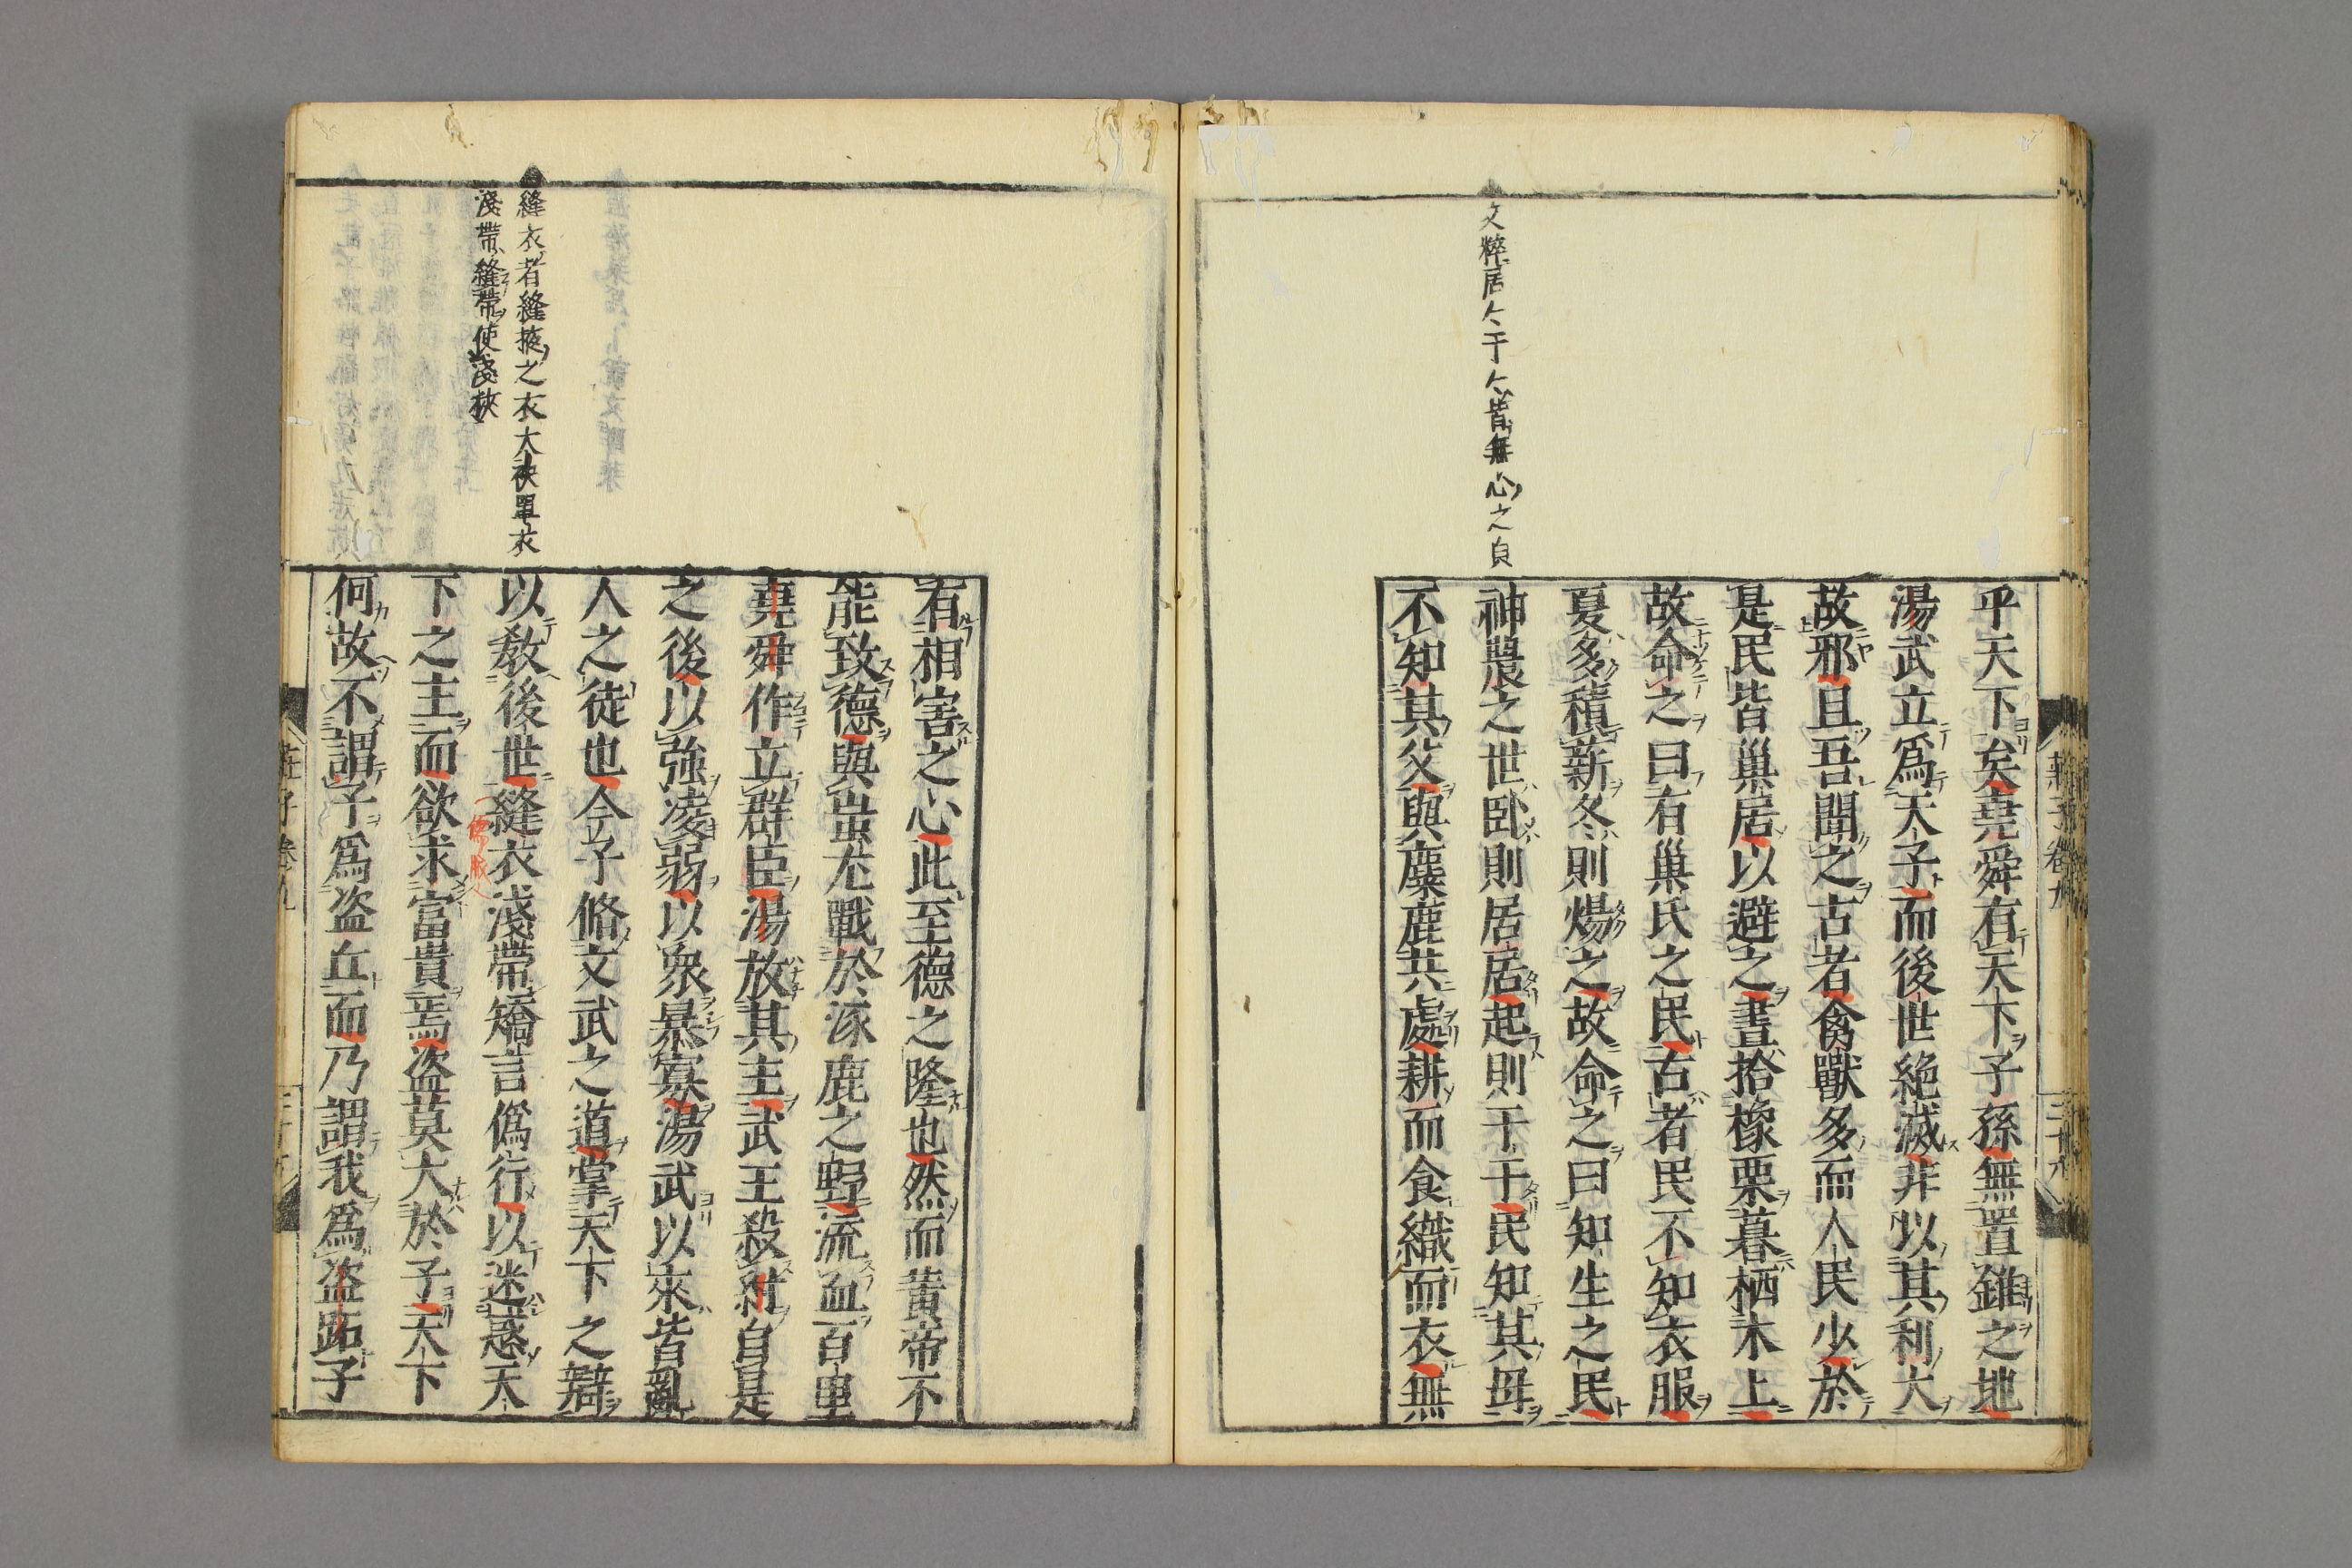 文粹居〻于〻皆無心之皃
乎天下矣堯舜有天下子孫無置錐之地
湯武立爲天子而後世絶滅非以其利大
故邪且吾聞之古者禽獸多而人民少於
是民皆巢居以避之晝拾橡栗暮栖木上
故命之曰有巢氏之民古者民不知衣服
夏多積薪冬則煬之故命之曰知生之民
神農之世卧則居居起則于于民知其母
不知其父與麋鹿共處耕而食織而衣無
縫衣者縫掖之衣大袂單衣
淺帶縫帶使淺狹
有相害之心此至德之隆也然而黄帝不
能致德與蚩尤戰於涿鹿之野流血百里
堯舜作立群臣湯放其主武王殺紂自是
之後以強凌弱以衆暴寡湯武以來皆亂
人之徒也今子脩文武之道掌天下之辯
以敎後世縫衣淺帶矯言僞行以迷惑天
下之主而欲求富貴焉盜莫大於子天下
何故不謂子爲盜丘而乃謂我爲盜跖子
莊子卷九